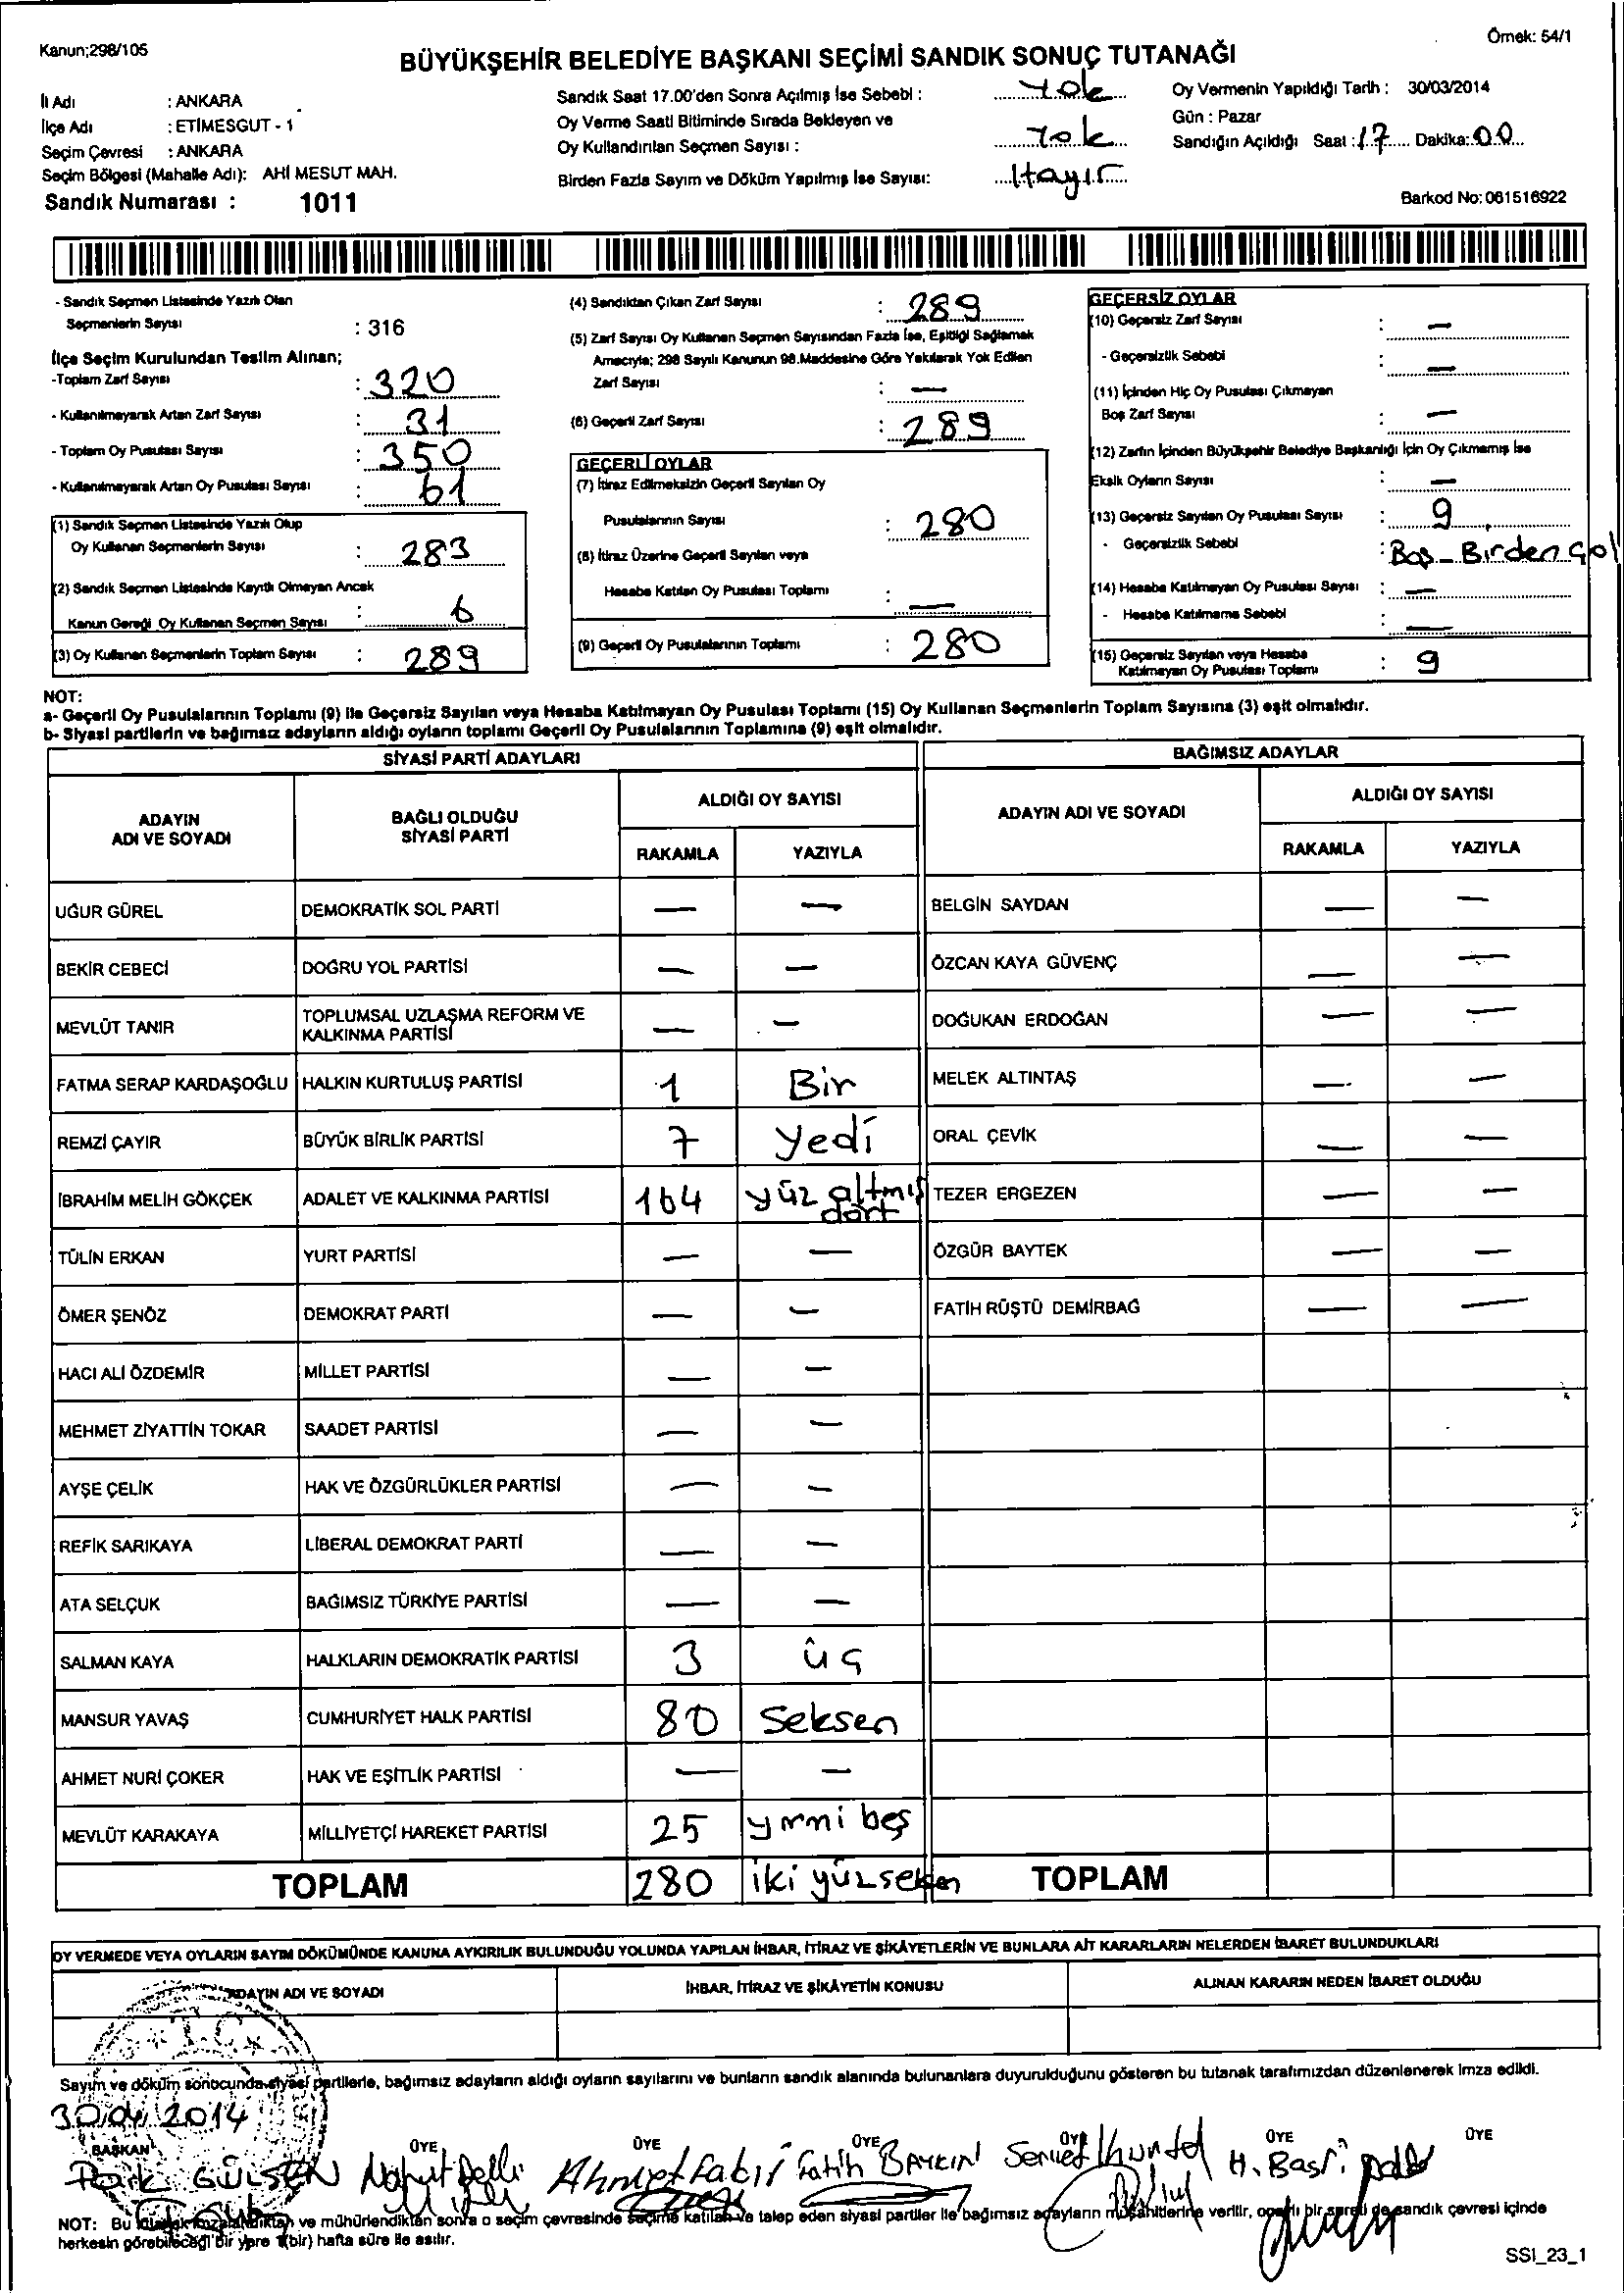 Kanun;298/105
Örnek: 54/1
BÜYÜKŞEHİR BELEDİYE BAŞKANI SEÇİMİ SANDIK SONUÇ TUTANAĞI
İl Adı : ANKARA
İlçe Adı : ETİMESGUT - 1
Seçim Çevresi : ANKARA
Seçim Bölgesi (Mahalle Adı): AHİ MESUT MAH.
Sandık Numarası : 1011
Sandık Saat 17.00'den Sonra Açılmış İse Sebebi : Yok
Oy Verme Saati Bitiminde Sırada Bekleyen ve
Oy Kullandırılan Seçmen Sayısı : Yok
Birden Fazla Sayım ve Döküm Yapılmış İse Sayısı: Hayır
Oy Vermenin Yapıldığı Tarih : 30/03/2014
Gün : Pazar
Sandığın Açıldığı Saat : 17 Dakika: 00
Barkod No: 061516922
- Sandık Seçmen Listesinde Yazılı Olan
Seçmenlerin Sayısı : 316
İlçe Seçim Kurulundan Teslim Alınan;
-Toplam Zarf Sayısı : 320
- Kullanılmayarak Artan Zarf Sayısı : 31
- Toplam Oy Pusulası Sayısı : 350
- Kullanılmayarak Artan Oy Pusulası Sayısı : 61
(1) Sandık Seçmen Listesinde Yazılı Olup
Oy Kullanan Seçmenlerin Sayısı : 283
(2) Sandık Seçmen Listesinde Kayıtlı Olmayan Ancak
Kanun Gereği Oy Kullanan Seçmen Sayısı : 6
(3) Oy Kullanan Seçmenlerin Toplam Sayısı : 289
(4) Sandıktan Çıkan Zarf Sayısı : 289
(5) Zarf Sayısı Oy Kullanan Seçmen Sayısından Fazla İse, Eşitliği Sağlamak
Amacıyla; 298 Sayılı Kanunun 98.Maddesine Göre Yakılarak Yok Edilen
Zarf Sayısı : —
(6) Geçerli Zarf Sayısı : 289
GEÇERLİ OYLAR
(7) İtiraz Edilmeksizin Geçerli Sayılan Oy
Pusulalarının Sayısı : 280
(8) İtiraz Üzerine Geçerli Sayılan veya
Hesaba Katılan Oy Pusulası Toplamı : —
(9) Geçerli Oy Pusulalarının Toplamı : 280
GEÇERSİZ OYLAR
(10) Geçersiz Zarf Sayısı : —
- Geçersizlik Sebebi : —
(11) İçinden Hiç Oy Pusulası Çıkmayan
Boş Zarf Sayısı : —
(12) Zarfın İçinden Büyükşehir Belediye Başkanlığı İçin Oy Çıkmamış İse
Eksik Oyların Sayısı : —
(13) Geçersiz Sayılan Oy Pusulası Sayısı : 9
- Geçersizlik Sebebi : Boş - Birden Çok
(14) Hesaba Katılmayan Oy Pusulası Sayısı : —
- Hesaba Katılmama Sebebi : —
(15) Geçersiz Sayılan veya Hesaba
Katılmayan Oy Pusulası Toplamı : 9
NOT:
a- Geçerli Oy Pusulalarının Toplamı (9) ile Geçersiz Sayılan veya Hesaba Katılmayan Oy Pusulası Toplamı (15) Oy Kullanan Seçmenlerin Toplam Sayısına (3) eşit olmalıdır.
b- Siyasi partilerin ve bağımsız adayların aldığı oyların toplamı Geçerli Oy Pusulalarının Toplamına (9) eşit olmalıdır.
SİYASİ PARTİ ADAYLARI
BAĞIMSIZ ADAYLAR
ADAYIN ADI VE SOYADI
BAĞLI OLDUĞU SİYASİ PARTİ
ALDIĞI OY SAYISI
RAKAMLA YAZIYLA
ADAYIN ADI VE SOYADI
ALDIĞI OY SAYISI
RAKAMLA YAZIYLA
UĞUR GÜREL DEMOKRATİK SOL PARTİ — — BELGİN SAYDAN — —
BEKİR CEBECİ DOĞRU YOL PARTİSİ — — ÖZCAN KAYA GÜVENÇ — —
MEVLÜT TANIR TOPLUMSAL UZLAŞMA REFORM VE KALKINMA PARTİSİ — — DOĞUKAN ERDOĞAN — —
FATMA SERAP KARDAŞOĞLU HALKIN KURTULUŞ PARTİSİ 1 Bir MELEK ALTINTAŞ — —
REMZİ ÇAYIR BÜYÜK BİRLİK PARTİSİ 7 Yedi ORAL ÇEVİK — —
İBRAHİM MELİH GÖKÇEK ADALET VE KALKINMA PARTİSİ 164 yüz altmış dört TEZER ERGEZEN — —
TÜLİN ERKAN YURT PARTİSİ — — ÖZGÜR BAYTEK — —
ÖMER ŞENÖZ DEMOKRAT PARTİ — — FATİH RÜŞTÜ DEMİRBAĞ — —
HACI ALİ ÖZDEMİR MİLLET PARTİSİ — —
MEHMET ZİYATTİN TOKAR SAADET PARTİSİ — —
AYŞE ÇELİK HAK VE ÖZGÜRLÜKLER PARTİSİ — —
REFİK SARIKAYA LİBERAL DEMOKRAT PARTİ — —
ATA SELÇUK BAĞIMSIZ TÜRKİYE PARTİSİ — —
SALMAN KAYA HALKLARIN DEMOKRATİK PARTİSİ 3 üç
MANSUR YAVAŞ CUMHURİYET HALK PARTİSİ 80 Seksen
AHMET NURİ ÇOKER HAK VE EŞİTLİK PARTİSİ — —
MEVLÜT KARAKAYA MİLLİYETÇİ HAREKET PARTİSİ 25 yirmi beş
TOPLAM 280 iki yüz seksen TOPLAM
OY VERMEDE VEYA OYLARIN SAYIM DÖKÜMÜNDE KANUNA AYKIRILIK BULUNDUĞU YOLUNDA YAPILAN İHBAR, İTİRAZ VE ŞİKÂYETLERİN VE BUNLARA AİT KARARLARIN NELERDEN İBARET BULUNDUKLARI
ADAYIN ADI VE SOYADI İHBAR, İTİRAZ VE ŞİKÂYETİN KONUSU ALINAN KARARIN NEDEN İBARET OLDUĞU
T.C.
Sayım ve döküm sonucunda siyasi partilerle, bağımsız adayların aldığı oyların sayılarını ve bunların sandık alanında bulunanlara duyurulduğunu gösteren bu tutanak tarafımızdan düzenlenerek imza edildi.
30/04/2014
BAŞKAN ÜYE ÜYE ÜYE ÜYE ÜYE ÜYE
GÜLŞEN Ahmet Fatih H. Basri
NOT: Bu tutanak imzalandıktan ve mühürlendikten sonra o seçim çevresinde seçime katılan ve talep eden siyasi partiler ile bağımsız adayların müşahitlerine verilir, onaylı bir sureti de sandık çevresi içinde
herkesin görebileceği bir yere 1(bir) hafta süre ile asılır.
SSI_23_1